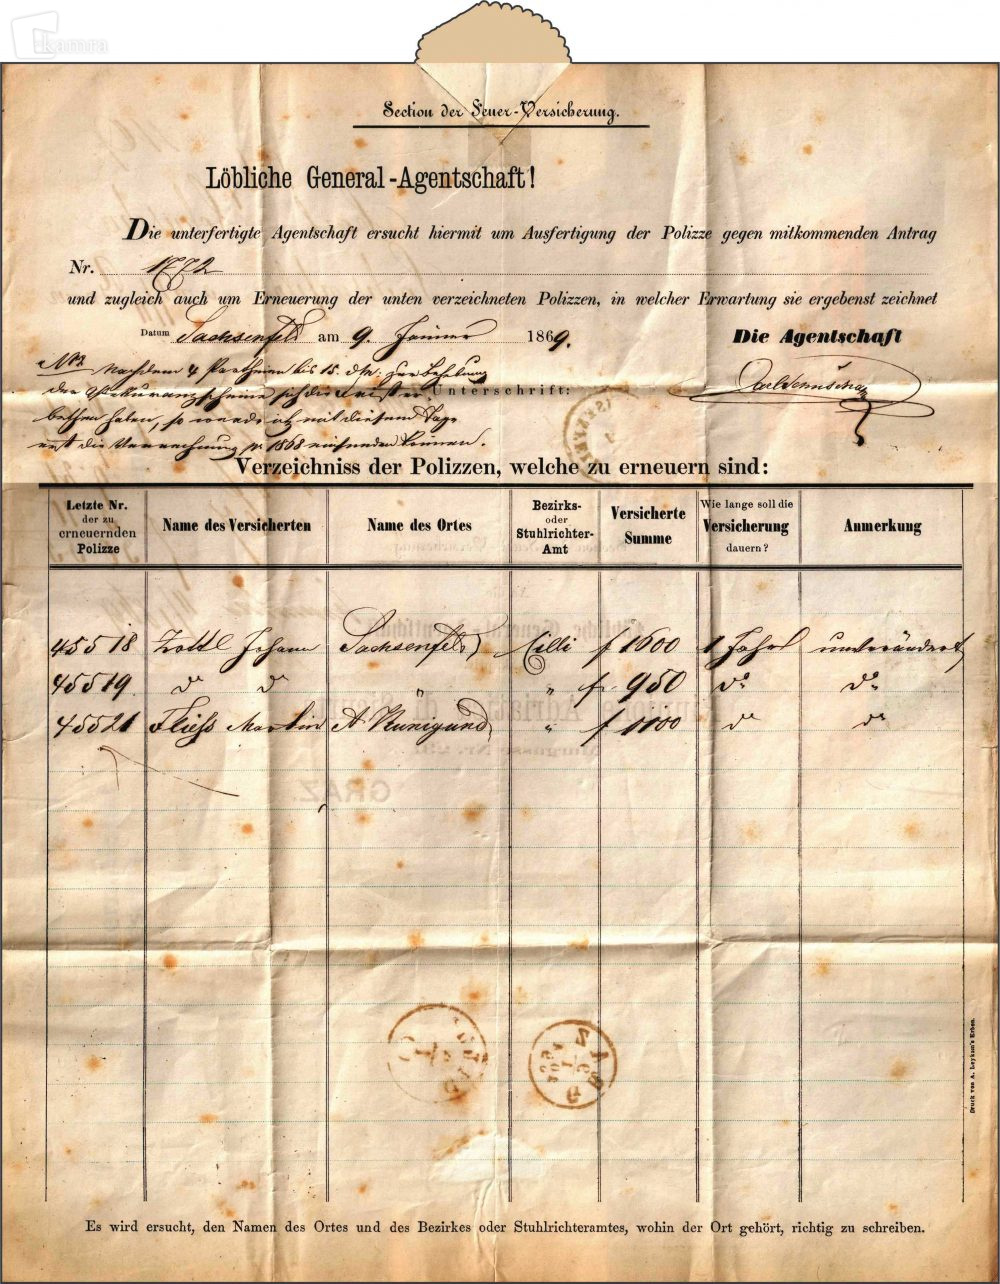 kamra
Section der Feuer-Versicherung.
Löbliche General-Agentschaft!
Die unterfertigte Agentschaft ersucht hiermit um Ausfertigung der Polizze gegen mitkommenden Antrag
Nr. 1772
und zugleich auch um Erneuerung der unten verzeichneten Polizzen, in welcher Erwartung sie ergebenst zeichnet
Datum Sachsenfeld am 9. Jänner 1869. Die Agentschaft
Nachdem 4 Partheien bis 15. dM. zur Behebung
der
Unterschrift:
bethen haben, so werde ich mit diesem Tage
erst die Verrechnung pr 1868 einsenden können.
Verzeichniss der Polizzen, welche zu erneuern sind:
Letzte Nr. der zu erneuernden Polizze | Name des Versicherten | Name des Ortes | Bezirks- oder Stuhlrichter-Amt | Versicherte Summe | Wie lange soll die Versicherung dauern? | Anmerkung
45518 Zottl Johann Sachsenfeld Cilli f 1600 1 Jahr unverändert
45519 do do " " f 950 do do
45521 Fliess Martin St Kunigund " f 1100 do do
GRAZ.
GRAZ
Druck von A. Leykam's Erben.
Es wird ersucht, den Namen des Ortes und des Bezirkes oder Stuhlrichteramtes, wohin der Ort gehört, richtig zu schreiben.